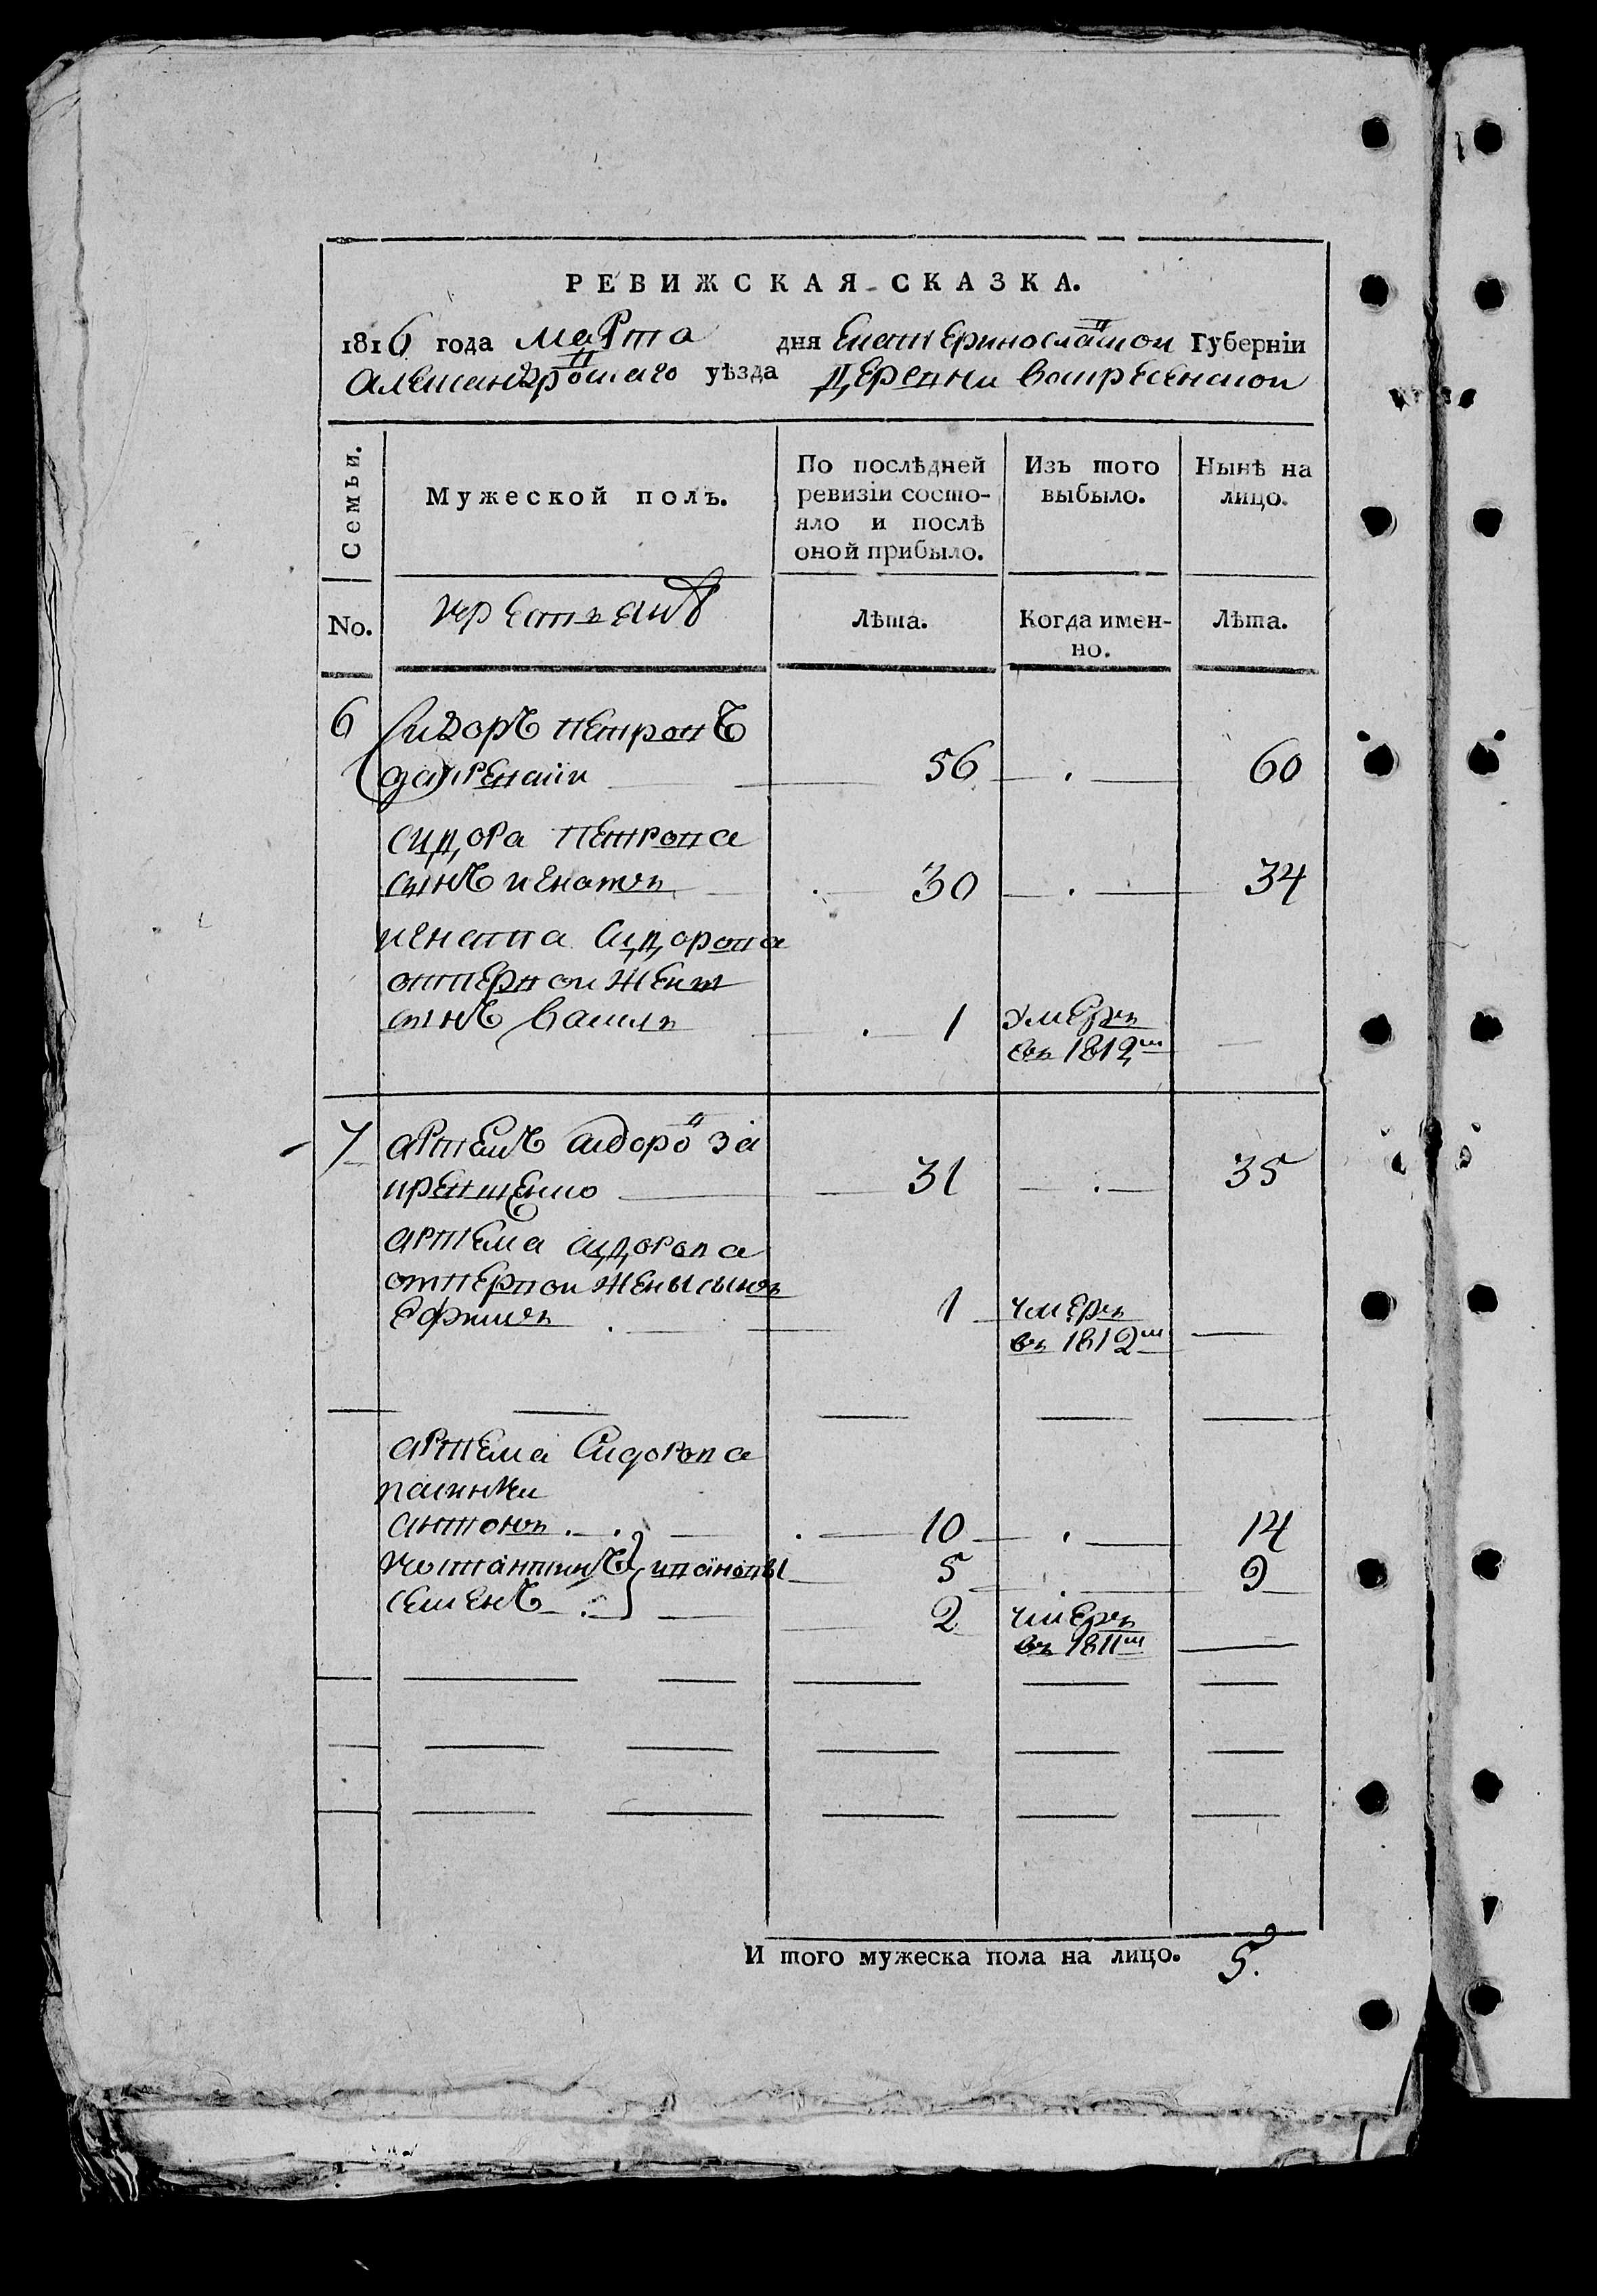 РЕВИЖСКАЯ СКАЗКА.
1816 года марта дня Екатеринославской Губерніи
Александровскаго уѣзда деревни воскресенской
Семьи.
Мужеской полъ.
По послѣдней ревизіи состояло и послѣ оной прибыло.
Изъ того выбыло.
Нынѣ на лицо.
No.
крестьянъ
Лѣта.
Когда имен-
но.
Лѣта.
6 Сидоръ петровъ
56 60
сидора петрова
сынъ игнатъ 30 34
игната сидорова
отпервой жены
сынъ василь 1 умеръ
въ 1812м
7 артемъ сидоровъ
31 35
артема сидорова
отпервой жены сынъ
ефимъ 1 умеръ
въ 1812м
артема сидорова
пасинки
антонъ 10 14
костантинъ ивановы 5 9
семенъ 2 умеръ
въ 1811м
И того мужеска пола на лицо. 5.